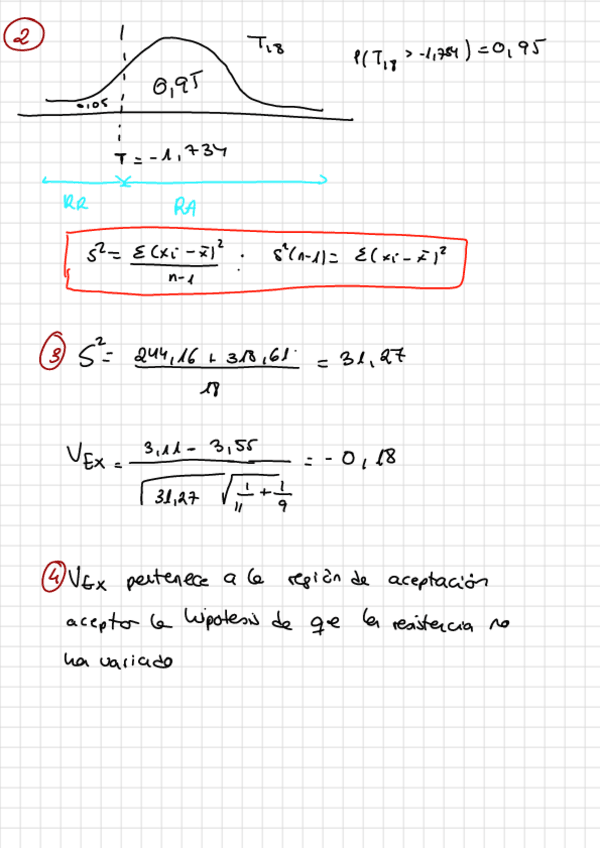 2
T₁₈
P(T₁₈ > -1,734) = 0,95
0,95
0,05
T = -1,734
RR RA
S² = Σ(xi - x̄)² / n-1 . S²(n-1) = Σ(xi - x̄)²
3 S² = 244,16 + 318,61 / 18 = 31,27
VEx = 3,11 - 3,55 / √31,27 √1/11 + 1/9 = -0,18
4 VEx pertenece a la región de aceptación
aceptor la hipotesis de que la resistencia no
ha variado